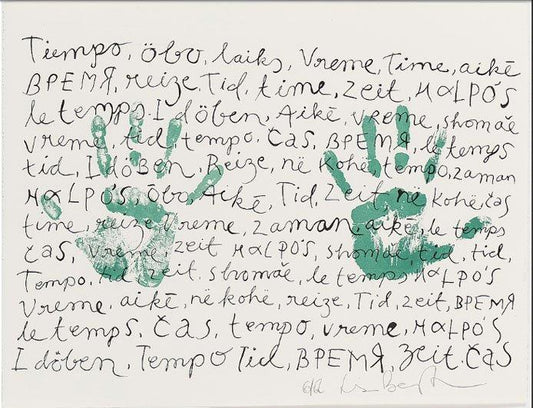 Tiempo, öbo, laiks, Vreme, Time, aikē
ВРЕМЯ, reize, Tid, time, Zeit, ΚαLΡΌS
le temps, Idöben, Aikē, vreme, shomãe
vreme, tid, tempo. Čas, ВРЕМЯ, le temps
tid, Idöben, Reize, në kohë, tempo, zaman
ΚαLΡΌS, öbo, Aikē, Tid, Zeit, në kohë, čas
time, reize, vreme, zaman, aikē, le temps
čas, vreme, zeit ΚαLΡΌS, shomãe, tid, tid,
Tempo, tid, zeit. shomãe, le temps, ΚαLΡΌS
Vreme, aikē, në kohe, reize, Tid, zeit, ВРЕМЯ
le temps. Čas, tempo, vreme, ΚαLΡΌS
Idöben, Tempo Tid, ВРЕМЯ, Zeit. Čas